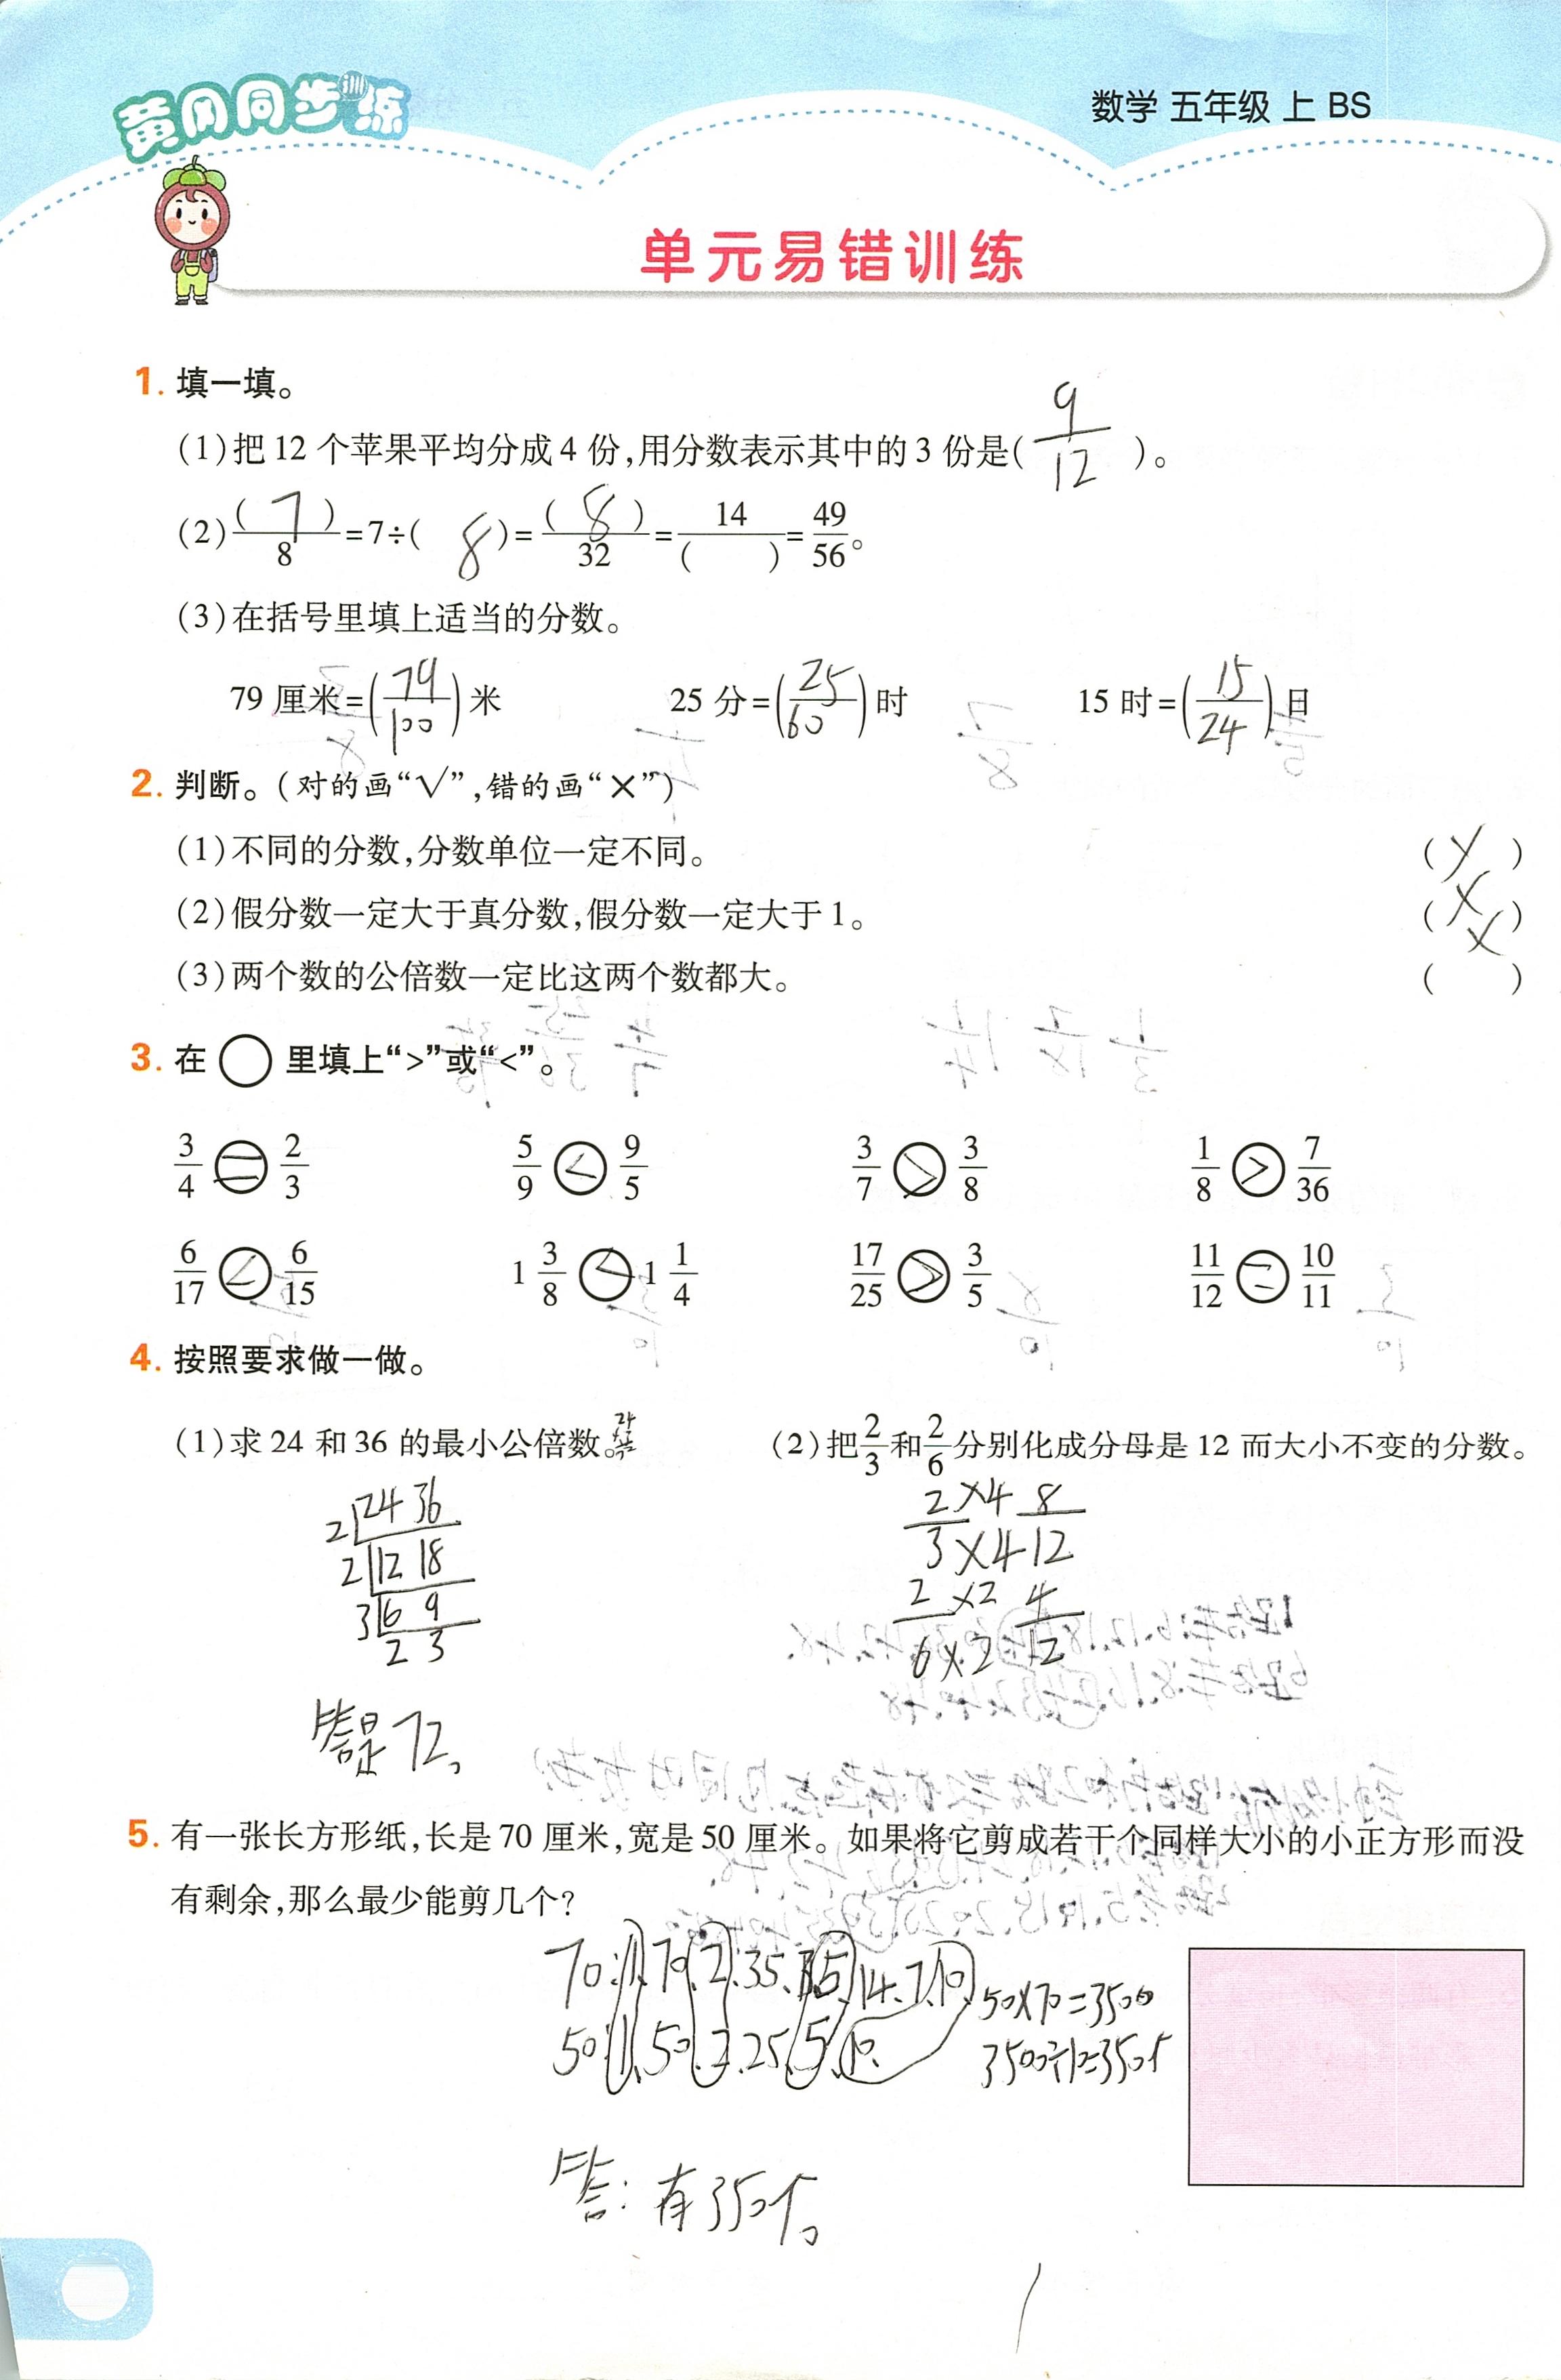 黄冈同步训练
数学 五年级 上 BS
单元易错训练
1. 填一填。
(1)把 12 个苹果平均分成 4 份,用分数表示其中的 3 份是( 9/12 )。
(2) (7)/8 =7÷( 8 )= (8)/32 = 14/( ) = 49/56 。
(3)在括号里填上适当的分数。
79 厘米=(79/100)米 25 分=(25/60)时 15 时=(15/24)日
2. 判断。(对的画“√”,错的画“×”)
(1)不同的分数,分数单位一定不同。 (×)
(2)假分数一定大于真分数,假分数一定大于 1。 (×)
(3)两个数的公倍数一定比这两个数都大。 (×)
3. 在 ○ 里填上“>”或“<”。
3/4 = 2/3 5/9 < 9/5 3/7 > 3/8 1/8 > 7/36
6/17 < 6/15 1 3/8 < 1 1/4 17/25 > 3/5 11/12 = 10/11
4. 按照要求做一做。
(1)求 24 和 36 的最小公倍数。 (2)把 2/3 和 2/6 分别化成分母是 12 而大小不变的分数。
2 24 36
2 12 18
3 6 9
2 3
答是72。
2×4 8
3×4 12
2×2 4
6×2 12
5. 有一张长方形纸,长是 70 厘米,宽是 50 厘米。如果将它剪成若干个同样大小的小正方形而没
有剩余,那么最少能剪几个?
70:1、70、2、35、5、14、7、10、
50:1、50、2、25、5、10、
50×70=3500
3500÷10=350个
答:有350个。